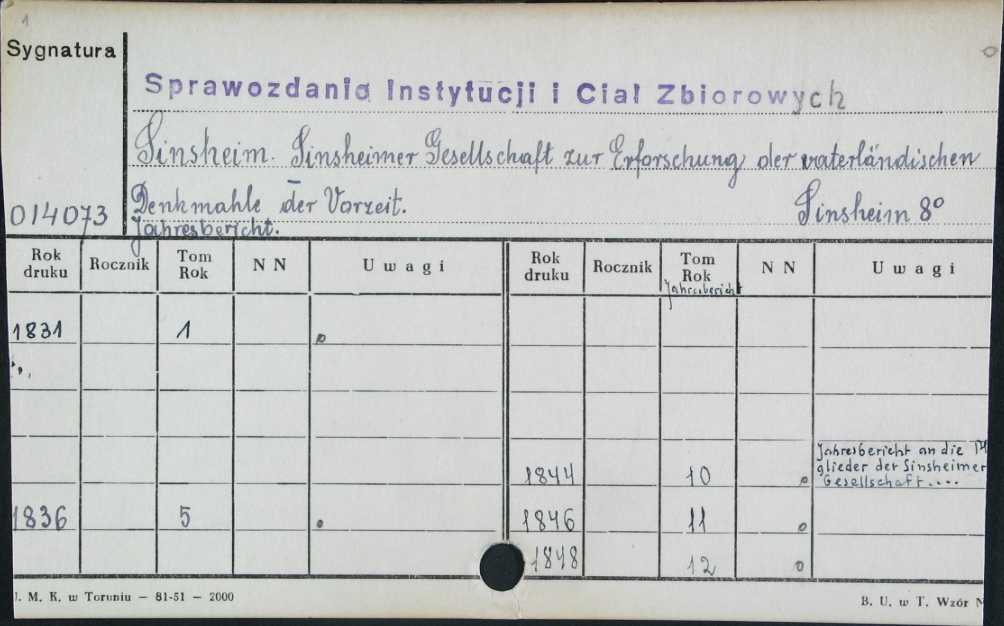 1
Sygnatura
Sprawozdania Instytucji i Ciał Zbiorowych
Sinsheim. Sinsheimer Gesellschaft zur Erforschung der vaterländischen
Denkmahle der Vorzeit. Sinsheim 8°
014073
Jahresbericht.
Rok druku Rocznik Tom Rok N N Uwagi Rok druku Rocznik Tom Rok N N Uwagi
Jahresbericht
1831 1
Jahresbericht an die
glieder der Sinsheimer
1844 10 Gesellschaft....
1836 5 1846 11
1848 12
M. K. w Toruniu — 81-51 — 2000 B. U. w T. Wzór